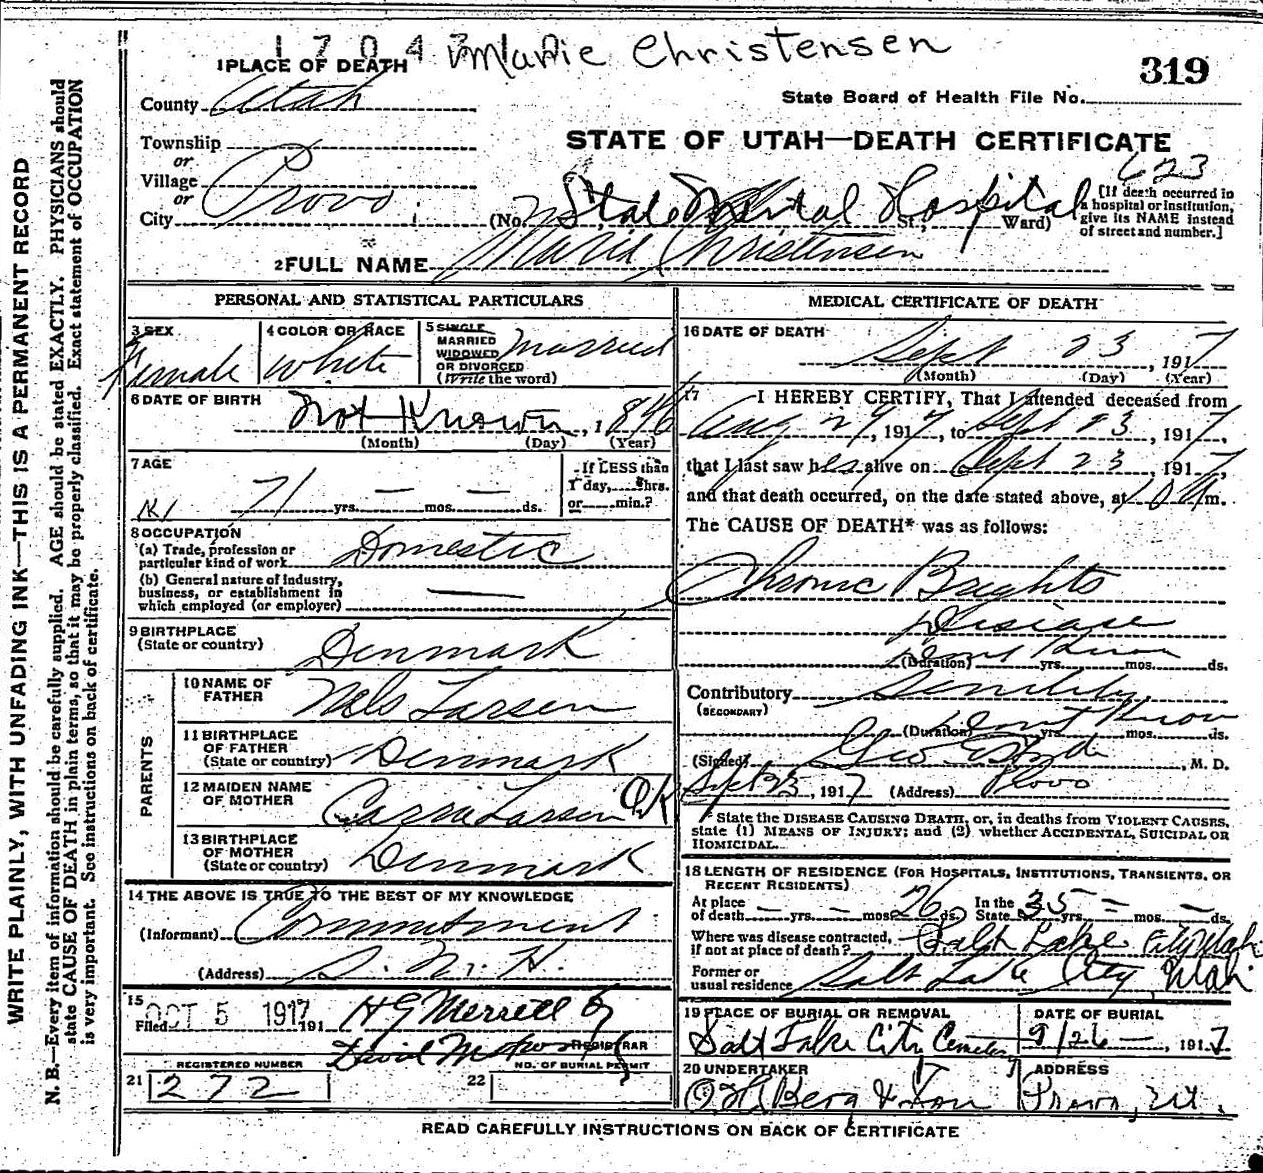 1 7 0 4 Marie Christensen
1 PLACE OF DEATH
319
County Utah
State Board of Health File No.
Township
STATE OF UTAH—DEATH CERTIFICATE
or
Village
623
or
City Provo (No. State Mental Hospital St., Ward)
[If death occurred in
a hospital or institution,
give its NAME instead
of street and number.]
2 FULL NAME Maria Christensen
PERSONAL AND STATISTICAL PARTICULARS
3 SEX
Female
4 COLOR OR RACE
white
5 SINGLE
MARRIED
WIDOWED
OR DIVORCED
(Write the word)
Married
6 DATE OF BIRTH
Not Known, 1846
(Month) (Day) (Year)
7 AGE
71 yrs. — mos. — ds.
If LESS than
1 day, hrs.
or min.?
8 OCCUPATION
(a) Trade, profession or
particular kind of work Domestic
(b) General nature of industry,
business, or establishment in
which employed (or employer) —
9 BIRTHPLACE
(State or country) Denmark
PARENTS
10 NAME OF
FATHER Nels Larsen
11 BIRTHPLACE
OF FATHER
(State or country) Denmark
12 MAIDEN NAME
OF MOTHER Larsen OK
13 BIRTHPLACE
OF MOTHER
(State or country) Denmark
14 THE ABOVE IS TRUE TO THE BEST OF MY KNOWLEDGE
(Informant) Commitment
(Address) S. M. H.
15
Filed OCT 5 1917 191 H G Merrell by
David REGISTRAR
REGISTERED NUMBER
NO. OF BURIAL PERMIT
21 272
22
MEDICAL CERTIFICATE OF DEATH
16 DATE OF DEATH
Sept 23, 1917
(Month) (Day) (Year)
17 I HEREBY CERTIFY, That I attended deceased from
Aug 29, 1917, to Sept 23, 1917,
that I last saw her alive on Sept 23, 1917,
and that death occurred, on the date stated above, at 10 A m.
The CAUSE OF DEATH* was as follows:
Chronic Brights
Disease
Dont Know
(Duration) yrs. mos. ds.
Contributory Senility
(SECONDARY)
Dont Know
(Duration) yrs. mos. ds.
(Signed) Geo E Hyde, M. D.
Sept 25, 1917 (Address) Provo
* State the DISEASE CAUSING DEATH, or, in deaths from VIOLENT CAUSES,
state (1) MEANS OF INJURY; and (2) whether ACCIDENTAL, SUICIDAL OR
HOMICIDAL.
18 LENGTH OF RESIDENCE (FOR HOSPITALS, INSTITUTIONS, TRANSIENTS, OR
RECENT RESIDENTS)
At place
of death — yrs. — mos. 26 ds.
In the
State 35 yrs. — mos. — ds.
Where was disease contracted,
if not at place of death? Salt Lake City Utah
Former or
usual residence Salt Lake City, Utah
19 PLACE OF BURIAL OR REMOVAL
Salt Lake City Cemetery
DATE OF BURIAL
9/26 —, 1917
20 UNDERTAKER
O H Berg & Son
ADDRESS
Provo, Ut.
READ CAREFULLY INSTRUCTIONS ON BACK OF CERTIFICATE
WRITE PLAINLY, WITH UNFADING INK—THIS IS A PERMANENT RECORD
N. B.—Every item of information should be carefully supplied. AGE should be stated EXACTLY. PHYSICIANS should
state CAUSE OF DEATH in plain terms, so that it may be properly classified. Exact statement of OCCUPATION
is very important. See instructions on back of certificate.